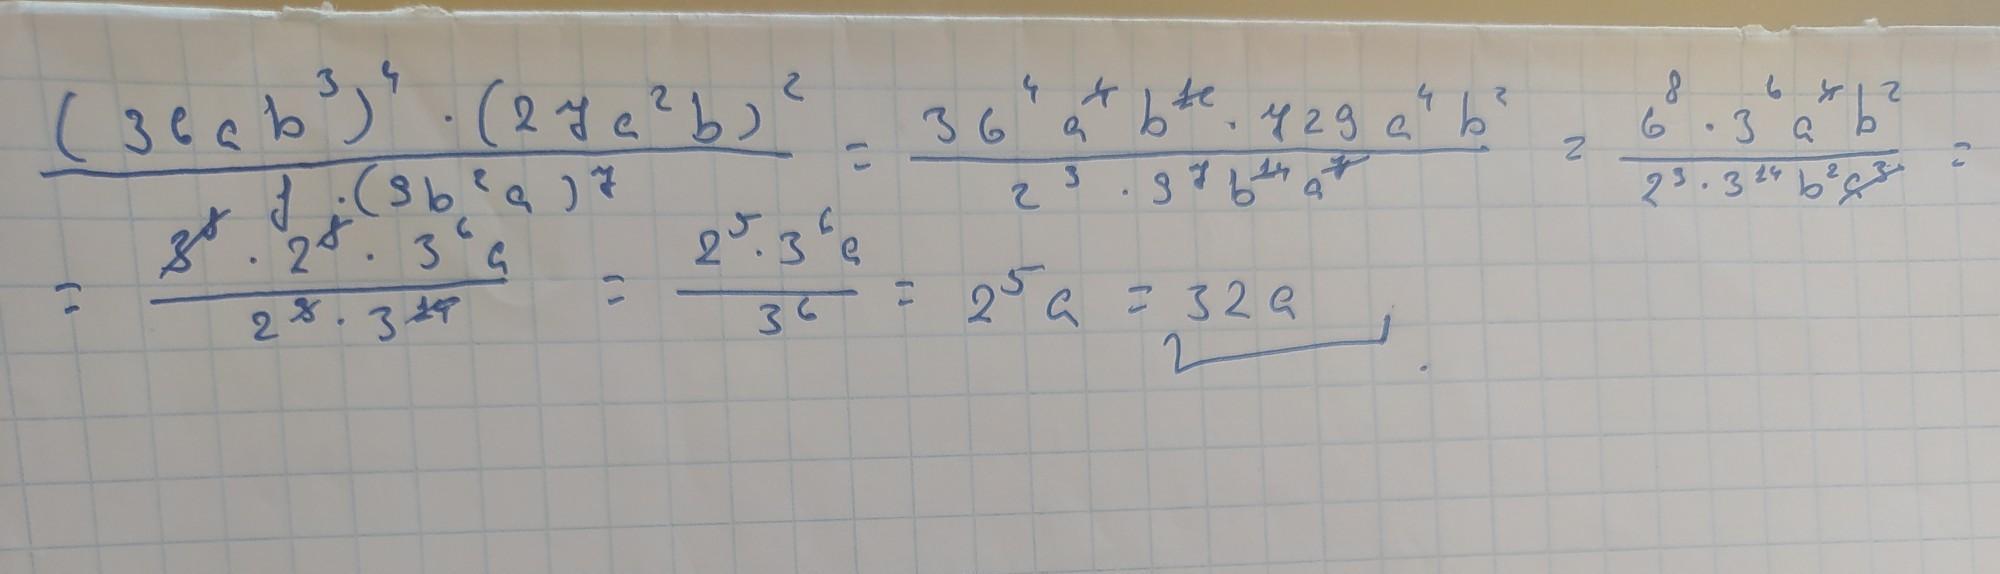 (36ab³)⁴ · (27a²b)² / 8 · (9b²a)⁷ = 36⁴ a⁴ b¹² · 729 a⁴ b² / 2³ · 9⁷ b¹⁴ a⁷ = 6⁸ · 3⁶ a⁴ b² / 2³ · 3¹⁴ b² a³ =
= 3⁸ · 2⁸ · 3⁶ a / 2³ · 3¹⁴ = 2⁵ · 3⁶ a / 3⁶ = 2⁵ a = 32a